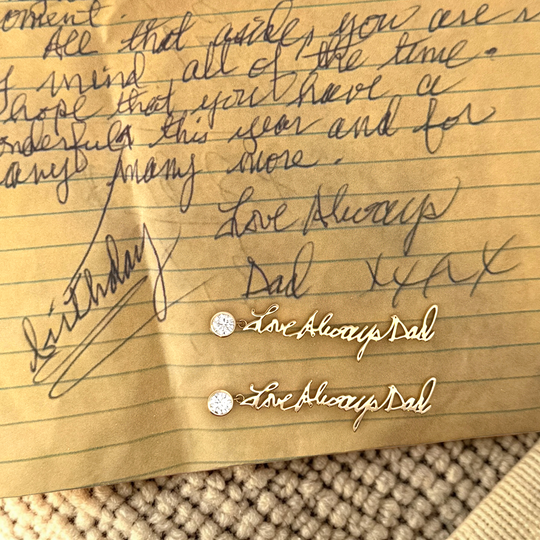 oment.
All that aside, you are
mind all of the time.
hope that you have a
onderful this year and for
any many more.
birthday
Love Always
Dad XXXX
Love Always Dad
Love Always Dad